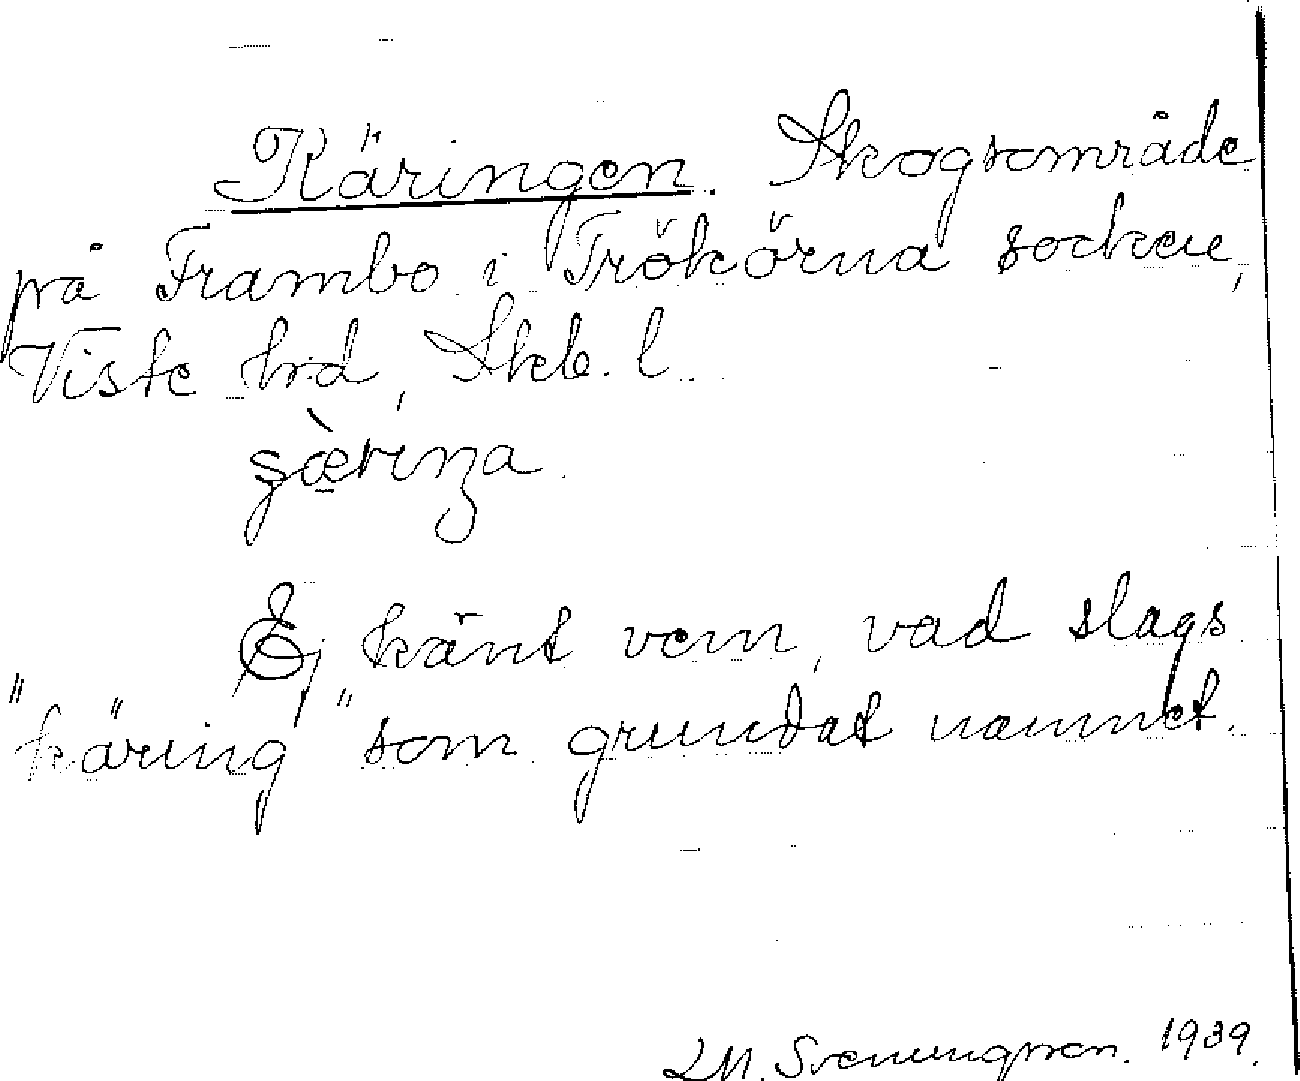 Käringen. Skogsområde
på Frambo i Trökörna socken,
Viste hrd, Skb. l.
Ej känt vem, vad slags
"käring" som grundat namnet.
L M. Svenungsson. 1939.